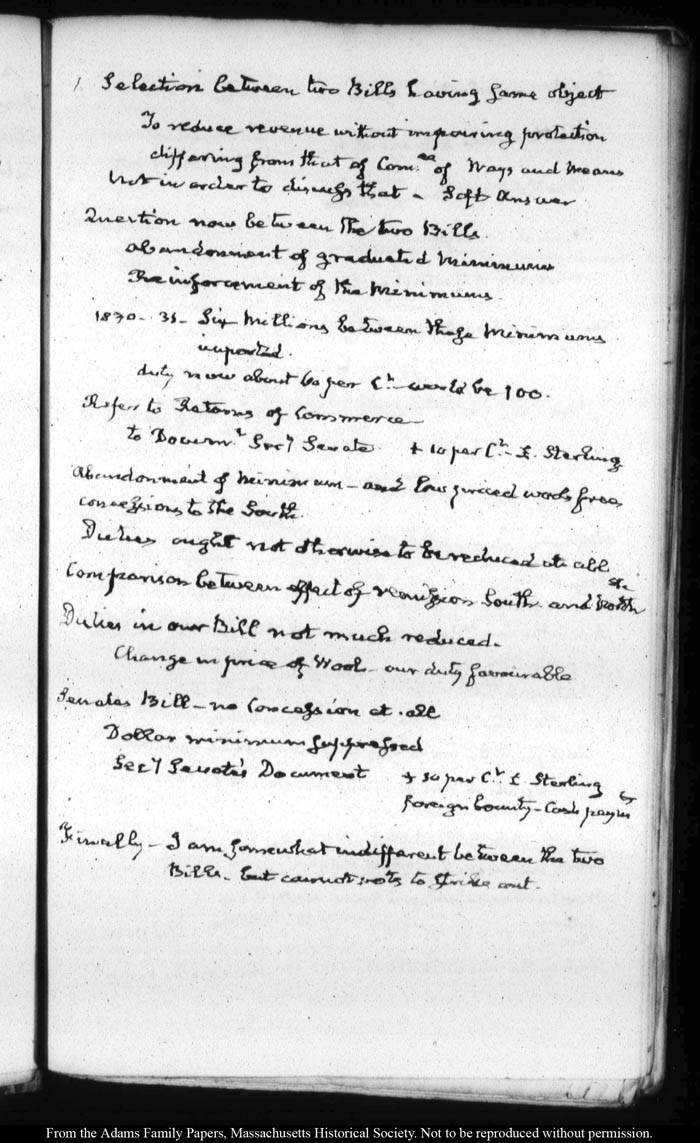 1. Selection between two Bills having same object
To reduce revenue without impairing protection
differing from that of Com.ee of Ways and Means
Not in order to discuss that – Soft answer
Question now between the two Bills.
Abandonment of graduated minimums
Reinforcement of the minimums.
1830–31– Six Millions between these minimums
imported.
duty now about 60 per Ct– would be 100.
Refer to Returns of Commerce
to Docum.t Secy Senate + 10 per Ct– £. Sterling
Abandonment of minimum – and low priced wools free
concessions to the South.
Duties ought not otherwise to be reduced at all
Comparison between effect of remission South and North
Duties in our Bill not much reduced.
Change in price of Wool – our duty favourable
Senates Bill – no Concession at all
Dollar minimum suppressed
Secy Senate's Document + 10 per Ct £. Sterling
foreign bounty – Cash
Finally – I am somewhat indifferent between the two
Bills – but cannot vote to strike out.
From the Adams Family Papers, Massachusetts Historical Society. Not to be reproduced without permission.